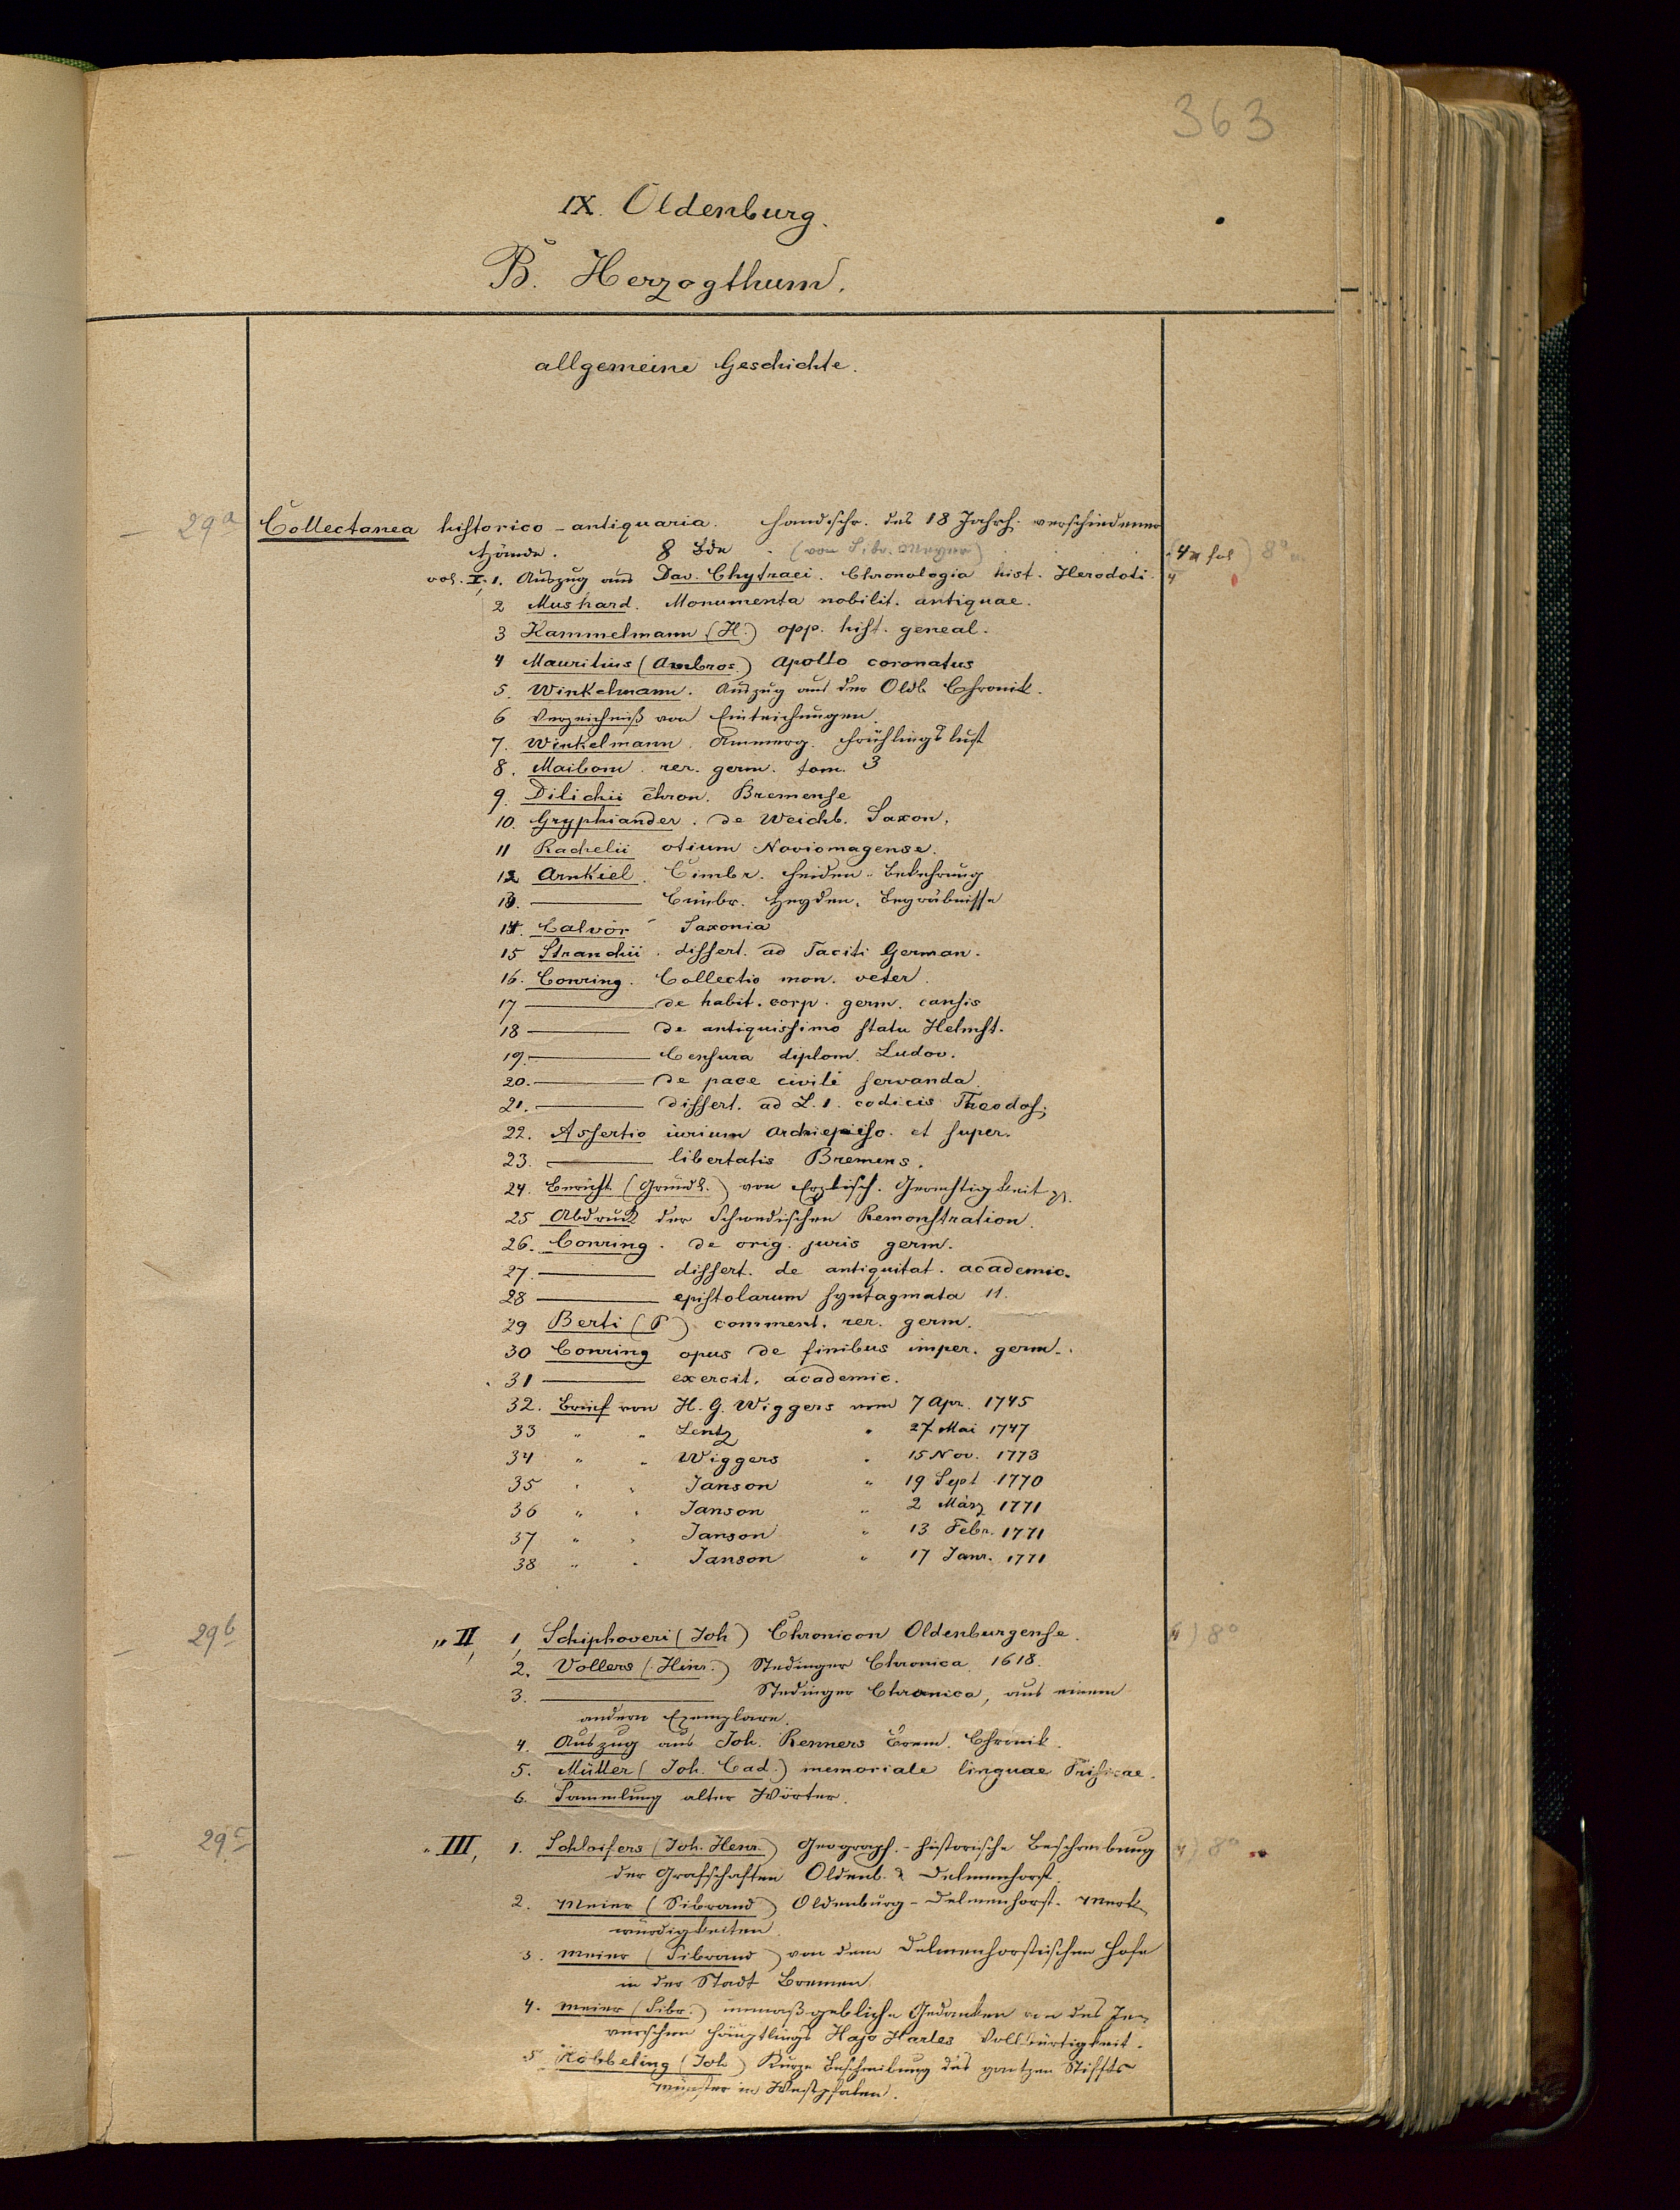 363
IX. Oldenburg.
B. Herzogthum.
allgemeine Geschichte.
29a Collectanea historico-antiquaria. Handschr. des 18 Jahrh. verschiedener
Hände. 8 Bde. (von Sibr. Meyer) (4 fol) 8°
vol. I, 1. Auszug aus Dav. Chytraei. Chronologia hist. Herodoti. 4
2 Mushard. Monumenta nobilit. antiquae.
3 Hammelmann (H.) opp. hist. geneal.
4 Mauritius (Ambros.) Apollo coronatus
5. Winkelmann. Auszug aus der Oldb Chronik.
6 Verzeichniß von Eindeichungen.
7. Winkelmann. Ammerg. Frühlingslust
8. Maibom. rer. germ. tom. 3
9. Dilichii chron. Bremense
10. Gryphiander. de Weichb. Saxon.
11 Rachelii otium Noviomagense.
12 Arnkiel. Cimbr. Heiden-Bekehrung
13. ——— Cimbr. Heyden-Begräbnisse
14. Calvör Saxonia
15 Strauchii. dissert. ad Taciti German.
16. Conring. Collectio mon. veter.
17 ——— de habit. corp. germ. causis
18 ——— de antiquissimo statu Helmst.
19. ——— Censura diplom. Ludov.
20. ——— de pace civili servanda.
21. ——— dissert. ad L. 1. codicis Theodos.
22. Assertio iurium archiepisc. et super.
23. ——— libertatis Bremens.
24. Bericht (Gründl.) von Erzbisch. Gerechtigkeit
25 Abdruck der Schwedischen Remonstration.
26. Conring. de orig. juris germ.
27. ——— dissert. de antiquitat. academic.
28 ——— epistolarum syntagmata 11.
29 Berti (P) comment. rer. germ.
30 Conring opus de finibus imper. germ.
31 ——— exercit. academic.
32. Brief von H. G. Wiggers vom 7 Apr. 1745
33 " " Lentz " 27 Mai 1747
34 " " Wiggers " 15 Nov. 1773
35 " " Janson " 19 Sept 1770
36 " " Janson " 2 März 1771
37 " " Janson " 13 Febr. 1771
38 " " Janson " 17 Janr. 1771
29b " II, 1, Schiphoveri (Joh) Chronicon Oldenburgense. 4) 8°
2. Vollers (Hinr.) Stedinger Chronica 1618.
3. ——— Stedinger Chronica, aus einem
andern Exemplare.
4. Auszug aus Joh. Renners Brem. Chronik.
5. Müller (Joh. Cad.) memoriale linguae Frisicae.
6. Sammlung alter Wörter.
29c " III, 1. Schloifers (Joh. Henr.) Geograph.-historische Beschreibung 4) 8°
der Grafschaften Oldenb. & Delmenhorst.
2. Meier (Sibrand) Oldenburg-Delmenhorst. Merk-
würdigkeiten.
3. Meier (Sibrand) von dem Delmenhorstischen Hofe
in der Stadt Bremen
4. Meier (Sibr.) unmaßgebliche Gedanken von des Je-
verschen Häuptlings Hajo Harles Vollbürtigkeit.
5 Köbbeling (Joh) Kurze Beschreibung des gantzen Stiffts
Münster in Westphalen.